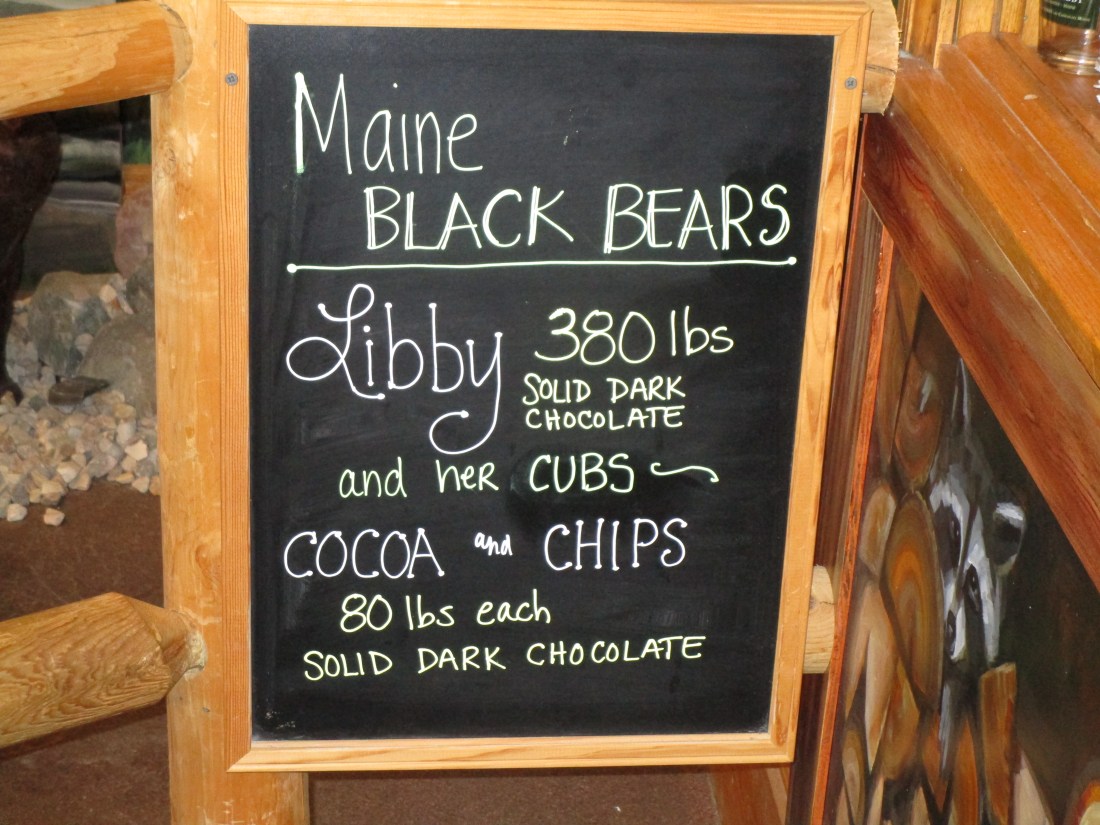 Maine
BLACK BEARS
Libby 380 lbs
SOLID DARK
CHOCOLATE
and her CUBS
COCOA and CHIPS
80 lbs each
SOLID DARK CHOCOLATE